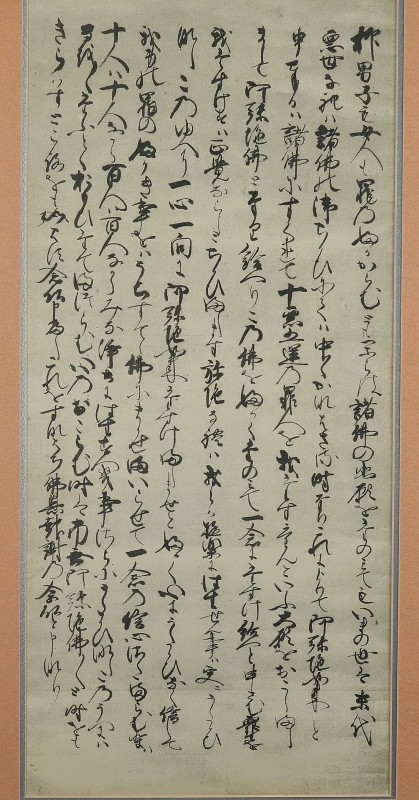 抑男子も女人も罪のふかからむともからは諸佛の悲願をたのみてもいまの世は末代
悪世なれは諸佛の御ちからにては中〳〵かなはさる時なりこれによりて阿弥陀如来と
申奉るは諸佛にすくれて十悪五逆の罪人を我たすけんといふ大願をおこしまし
まして阿弥陀佛となり給へりこの佛をふかくたのみて一念にたすけ給へと申さむ衆生を
我たすけすは正覚ならしとちかひまします弥陀なれは我等か極楽に往生せん事は更にうたかひ
なしこのゆへに一心一向に阿弥陀如来たすけ給へとふかく心にうたかひなく信して
我身の罪のふかき事をはうちすて佛にまかせまいらせて一念の信心さたまらむ輩は
十人は十人なから百人は百人なからみな浄土に往生すへき事さらにうたかひなしこのうへには
たふとくおもひたてまつらむ心のおこらむ時は南無阿弥陀佛と時をも
きらはすところをも念佛申へしこれをすなはち佛恩報謝の念佛と申なり